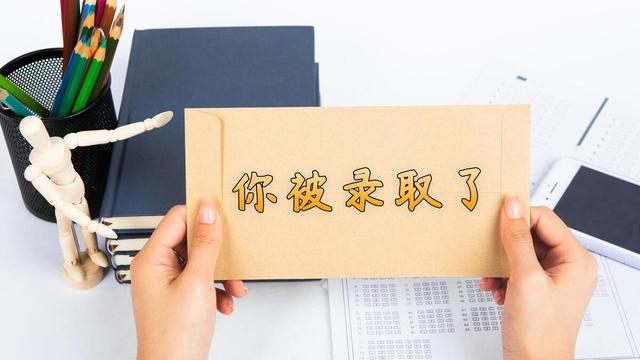 你被录取了